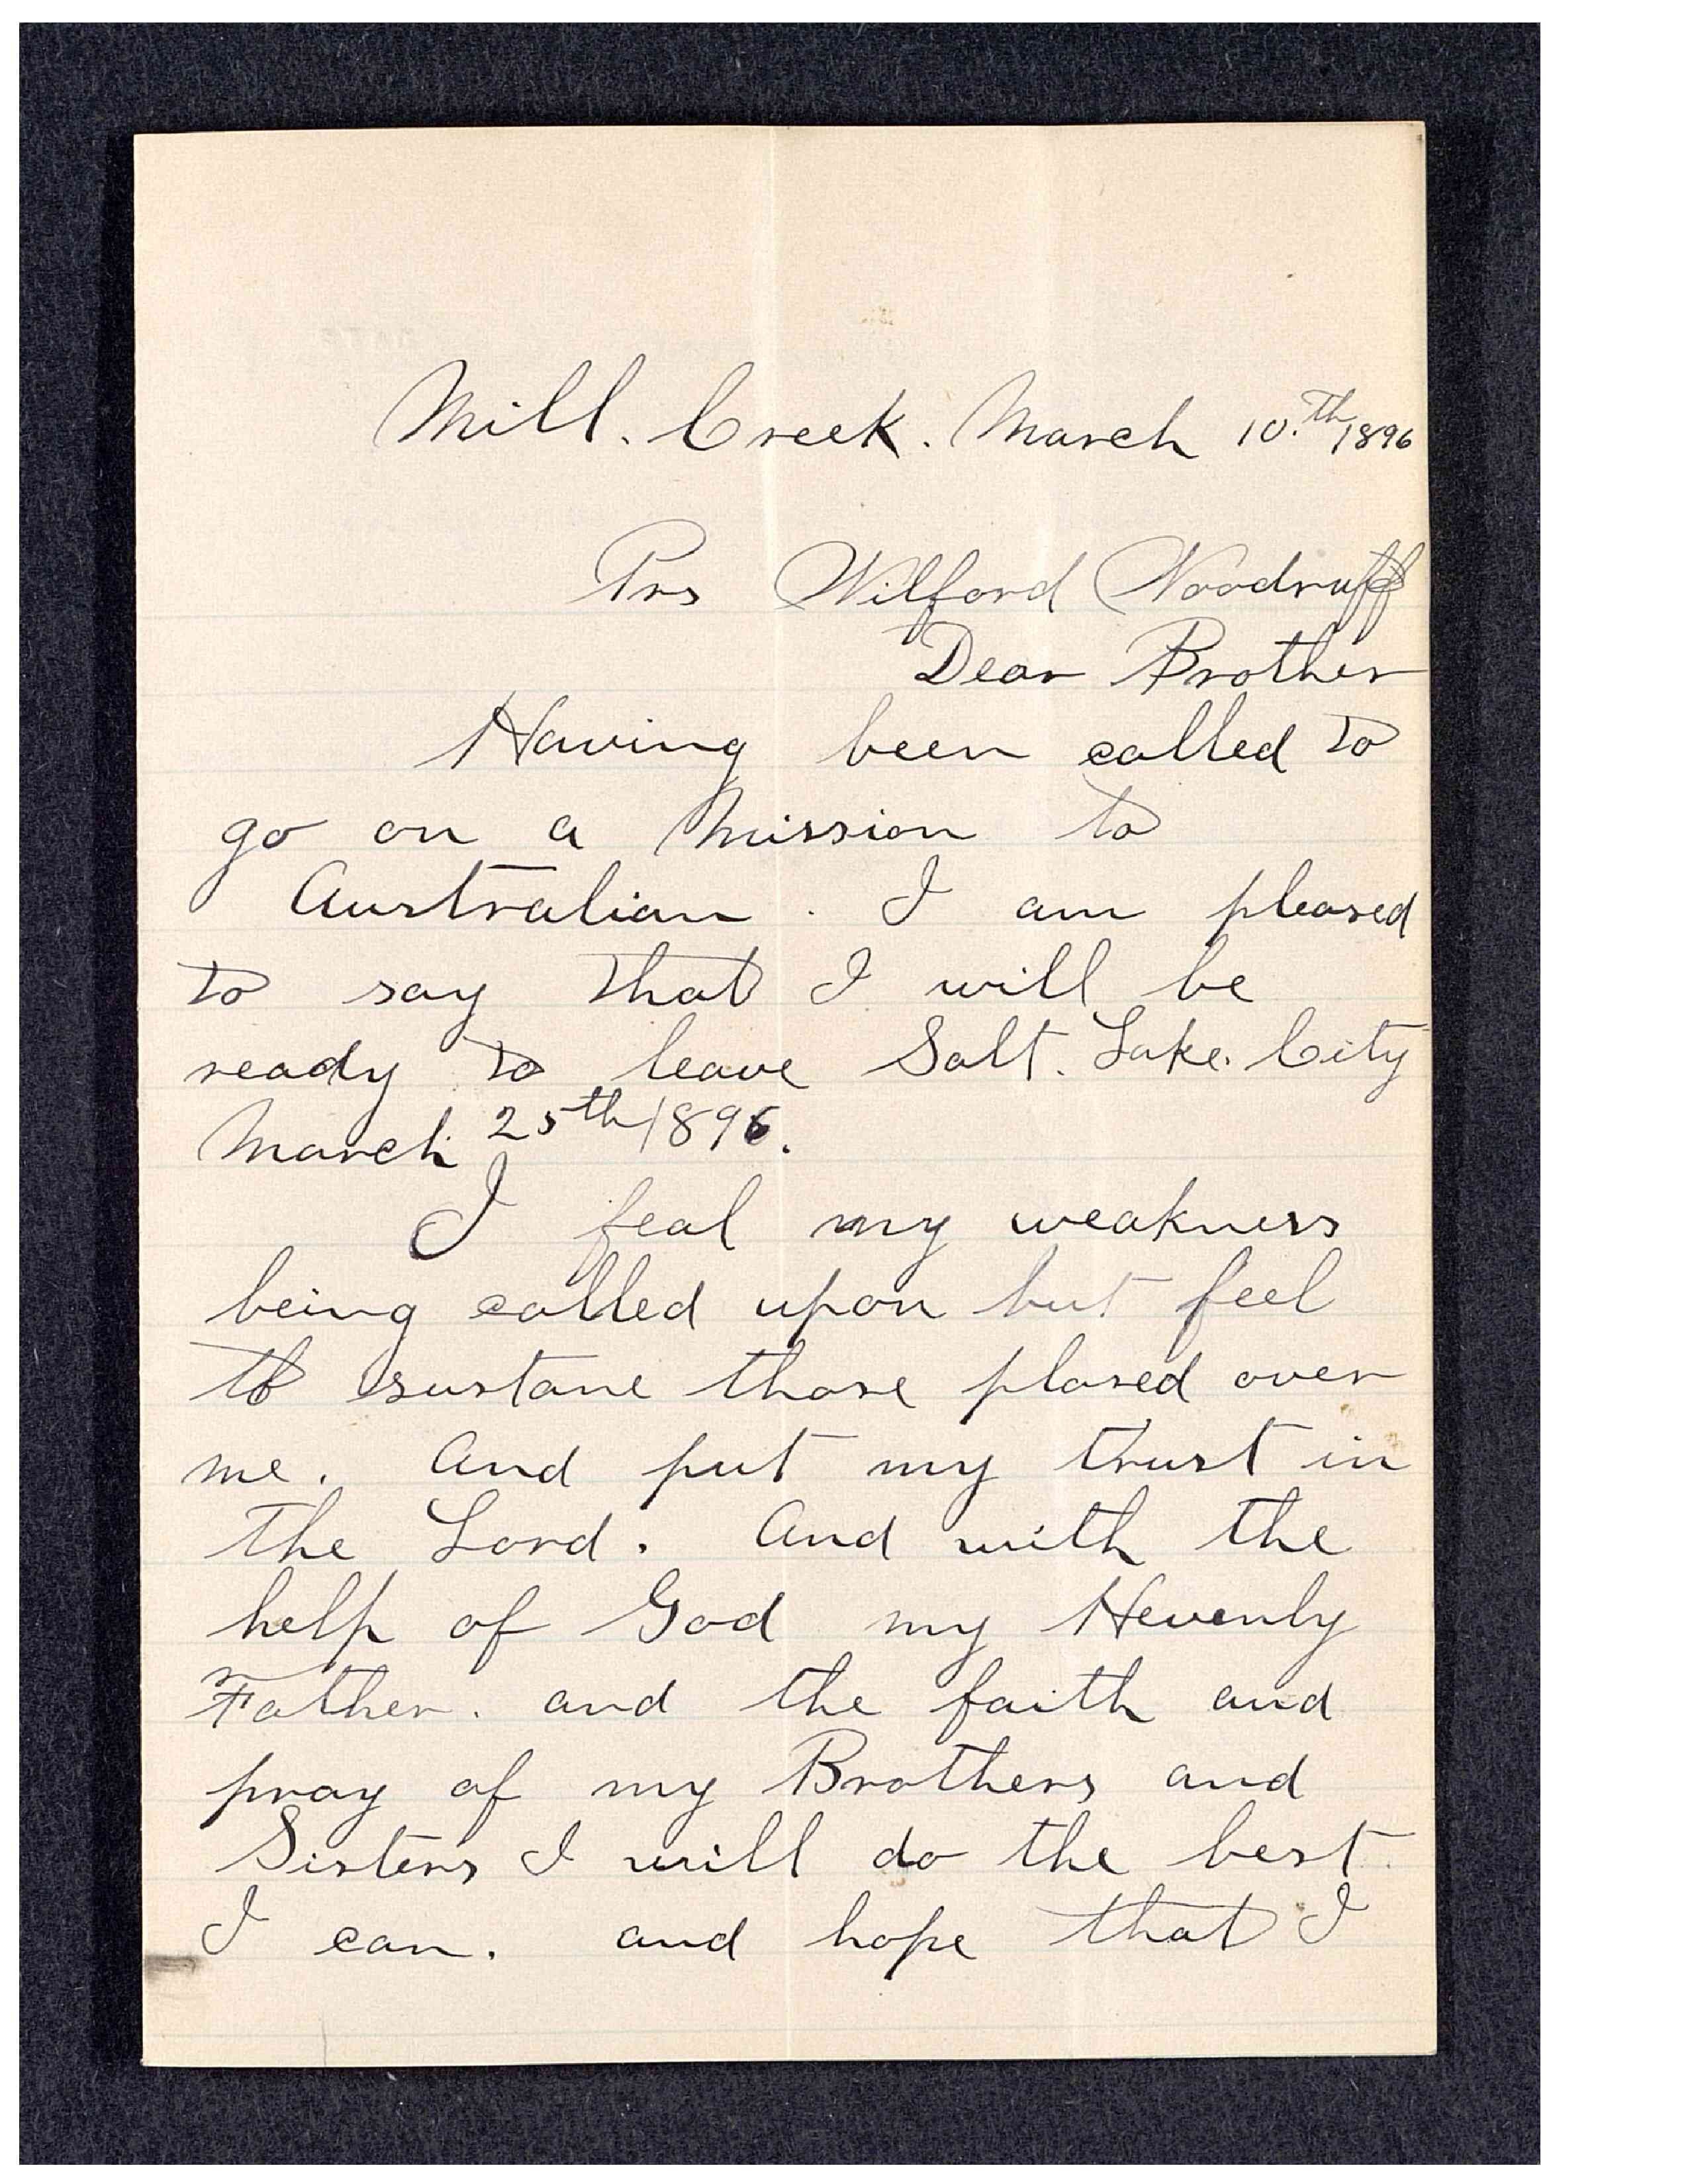 Mill. Creek. March 10.th 1896
Prs Wilford Woodruff
Dear Brother
Having been called to
go on a Mission to
Australian. I am pleased
to say that I will be
ready to leave Salt. Lake. City
March 25th 1896.
I feal my weakness
being called upon but feel
to sustane those plased over
me. And put my trust in
the Lord. And with the
help of God my Hevenly
Father. and the faith and
pray of my Brothers and
Sisters I will do the best
I can. and hope that I